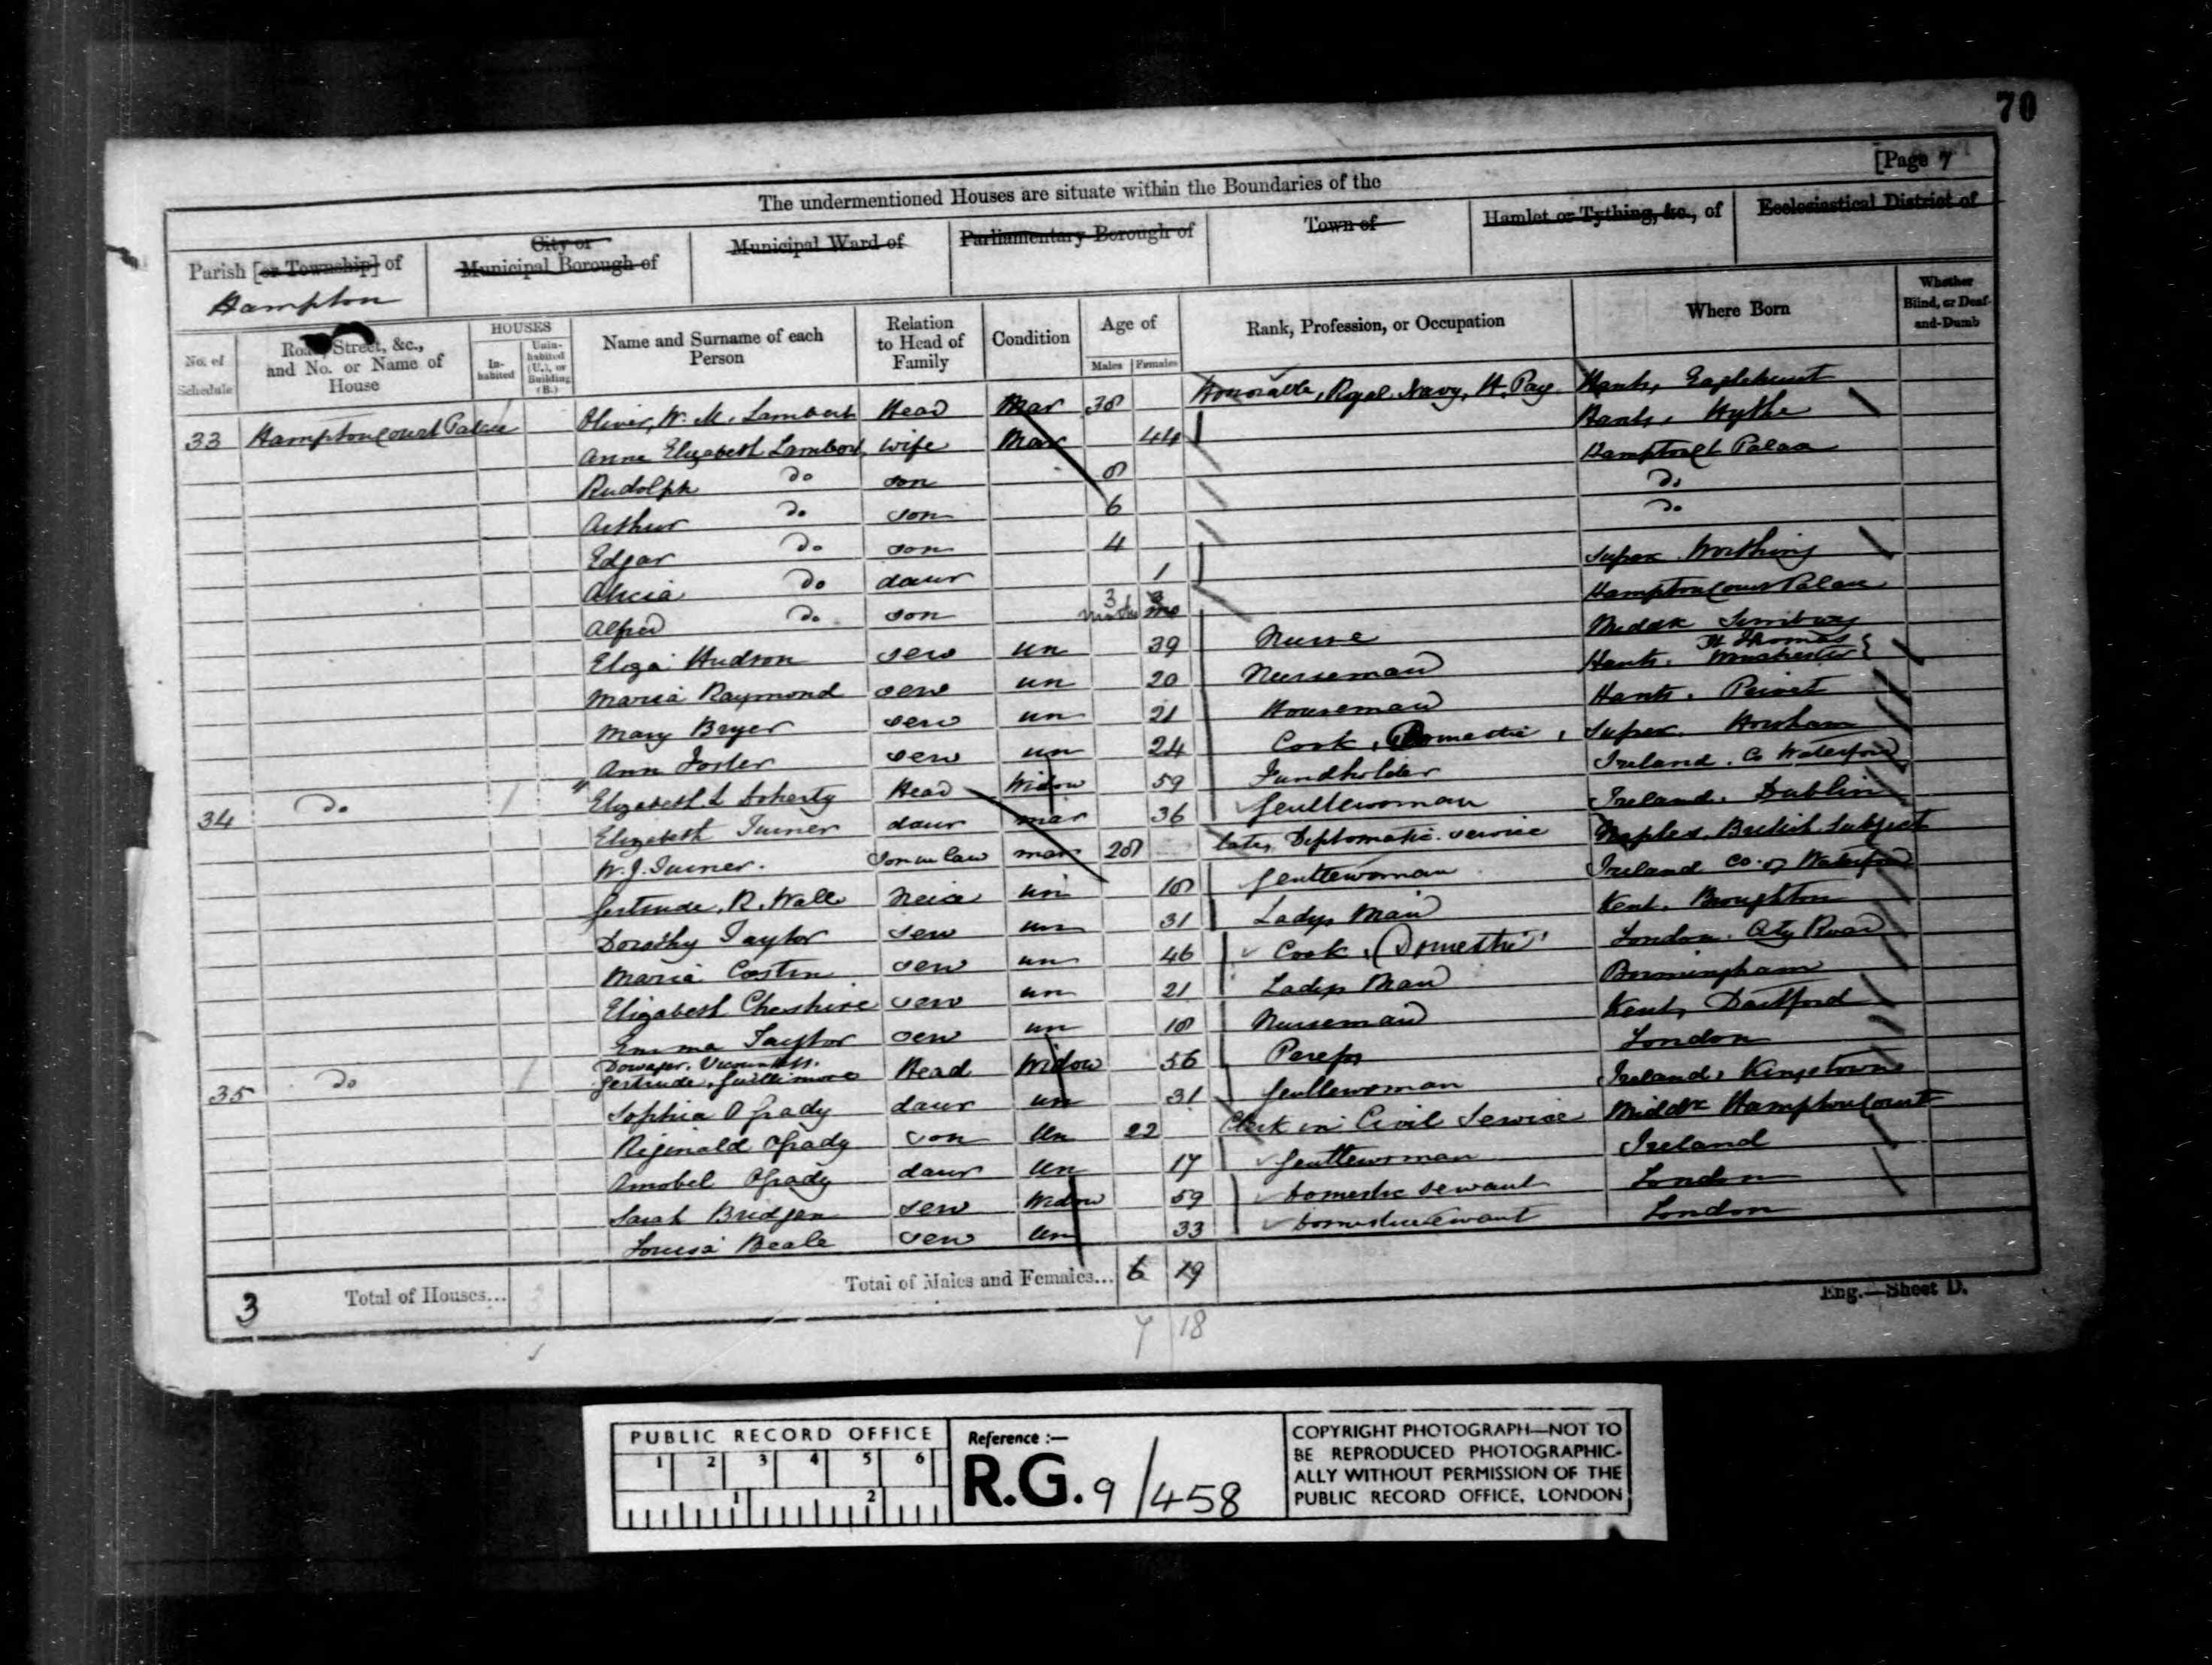 70
[Page 7
The undermentioned Houses are situate within the Boundaries of the
Parish [or Township] of
Hampton
City or
Municipal Borough of
Municipal Ward of
Parliamentary Borough of
Town of
Hamlet or Tything, &c., of
Ecclesiastical District of
No. of Schedule
Road, Street, &c., and No. or Name of House
HOUSES
In-habited
Unin-habited (U.), or Building (B.)
Name and Surname of each Person
Relation to Head of Family
Condition
Age of
Males
Females
Rank, Profession, or Occupation
Where Born
Whether Blind, or Deaf-and-Dumb
33 Hampton Court Palace Oliver, W. M. Lambert Head Mar 38 Honorable, Royal Navy, H. Pay Hants, Eaglehurst
Anne Elizabeth Lambert wife Mar 44 Hants, Hythe
Rudolph Do son 8 Hampton Ct Palace
Arthur Do son 6 Do
Edgar Do son 4 Do
Alicia Do daur 1 Sussex Worthing
Alfred Do son 3 months 3 mo Hampton Court Palace
Eliza Hudson serv un 39 Nurse Middx Sunbury
Maria Raymond serv un 20 Nursemaid Hants. St Thomas Winchester
Mary Bryer serv un 21 Housemaid Hants. Privet
Ann Foster serv un 24 Cook, Domestic, Sussex. Horsham
34 Do 1 Elizabeth L Doherty Head Widow 59 Fundholder Ireland. Co Waterford
Elizabeth Turner daur mar 36 Gentlewoman Ireland. Dublin
W. J. Turner. Son in law mar 28 late, Diplomatic service Naples. British Subject
Gertrude. R. Wall Neice un 18 Gentlewoman Ireland Co. of Waterford
Dorothy Taylor serv un 31 Ladys Maid Kent. Broughton
Maria Costin serv un 46 Cook, (Domestic) London. City Road
Elizabeth Cheshire serv un 21 Ladys Maid Birmingham
Emma Taylor serv un 18 Nursemaid Kent, Dartford
35 Do 1 Dowager. Viscountess. Gertrude, Guillimore Head Widow 56 Peeress London
Sophia O Grady daur un 31 Gentlewoman Ireland, Kingstown
Riginald OGrady son Un 22 Clerk in Civil Service Middx Hampton Court
Amabel OGrady daur Un 17 Gentlewoman Ireland
Sarah Bridgen serv Widow 59 Domestic servant London
Louisa Beale serv Un 33 Domestic servant London
3 Total of Houses... 3 Total of Males and Females... 6 19
7 18
Eng.—Sheet D.
PUBLIC RECORD OFFICE
1 2 3 4 5 6
1 2
Reference :—
R.G. 9/458
COPYRIGHT PHOTOGRAPH—NOT TO
BE REPRODUCED PHOTOGRAPHIC-
ALLY WITHOUT PERMISSION OF THE
PUBLIC RECORD OFFICE, LONDON